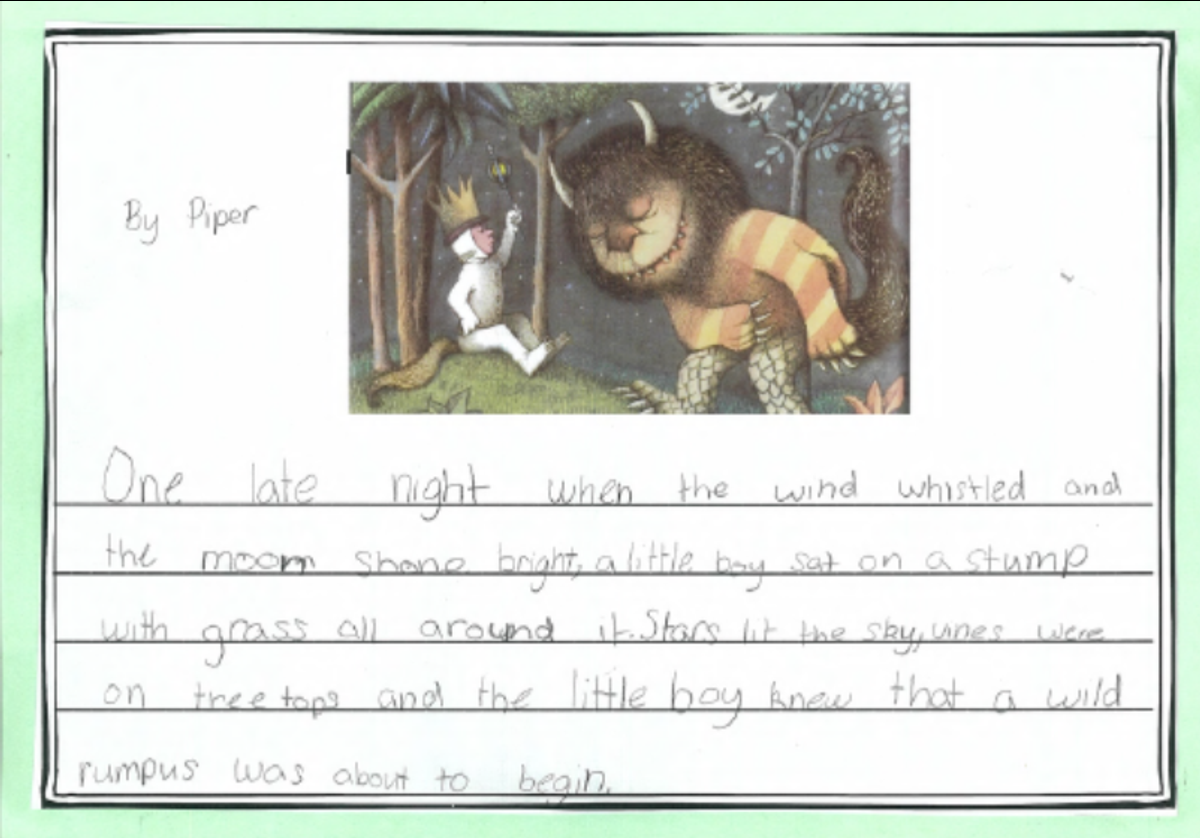 By Piper
One late night when the wind whistled and
the moon shone bright, a little boy sat on a stump
with grass all around it. Stars lit the sky, vines were
on tree tops and the little boy knew that a wild
rumpus was about to begin.